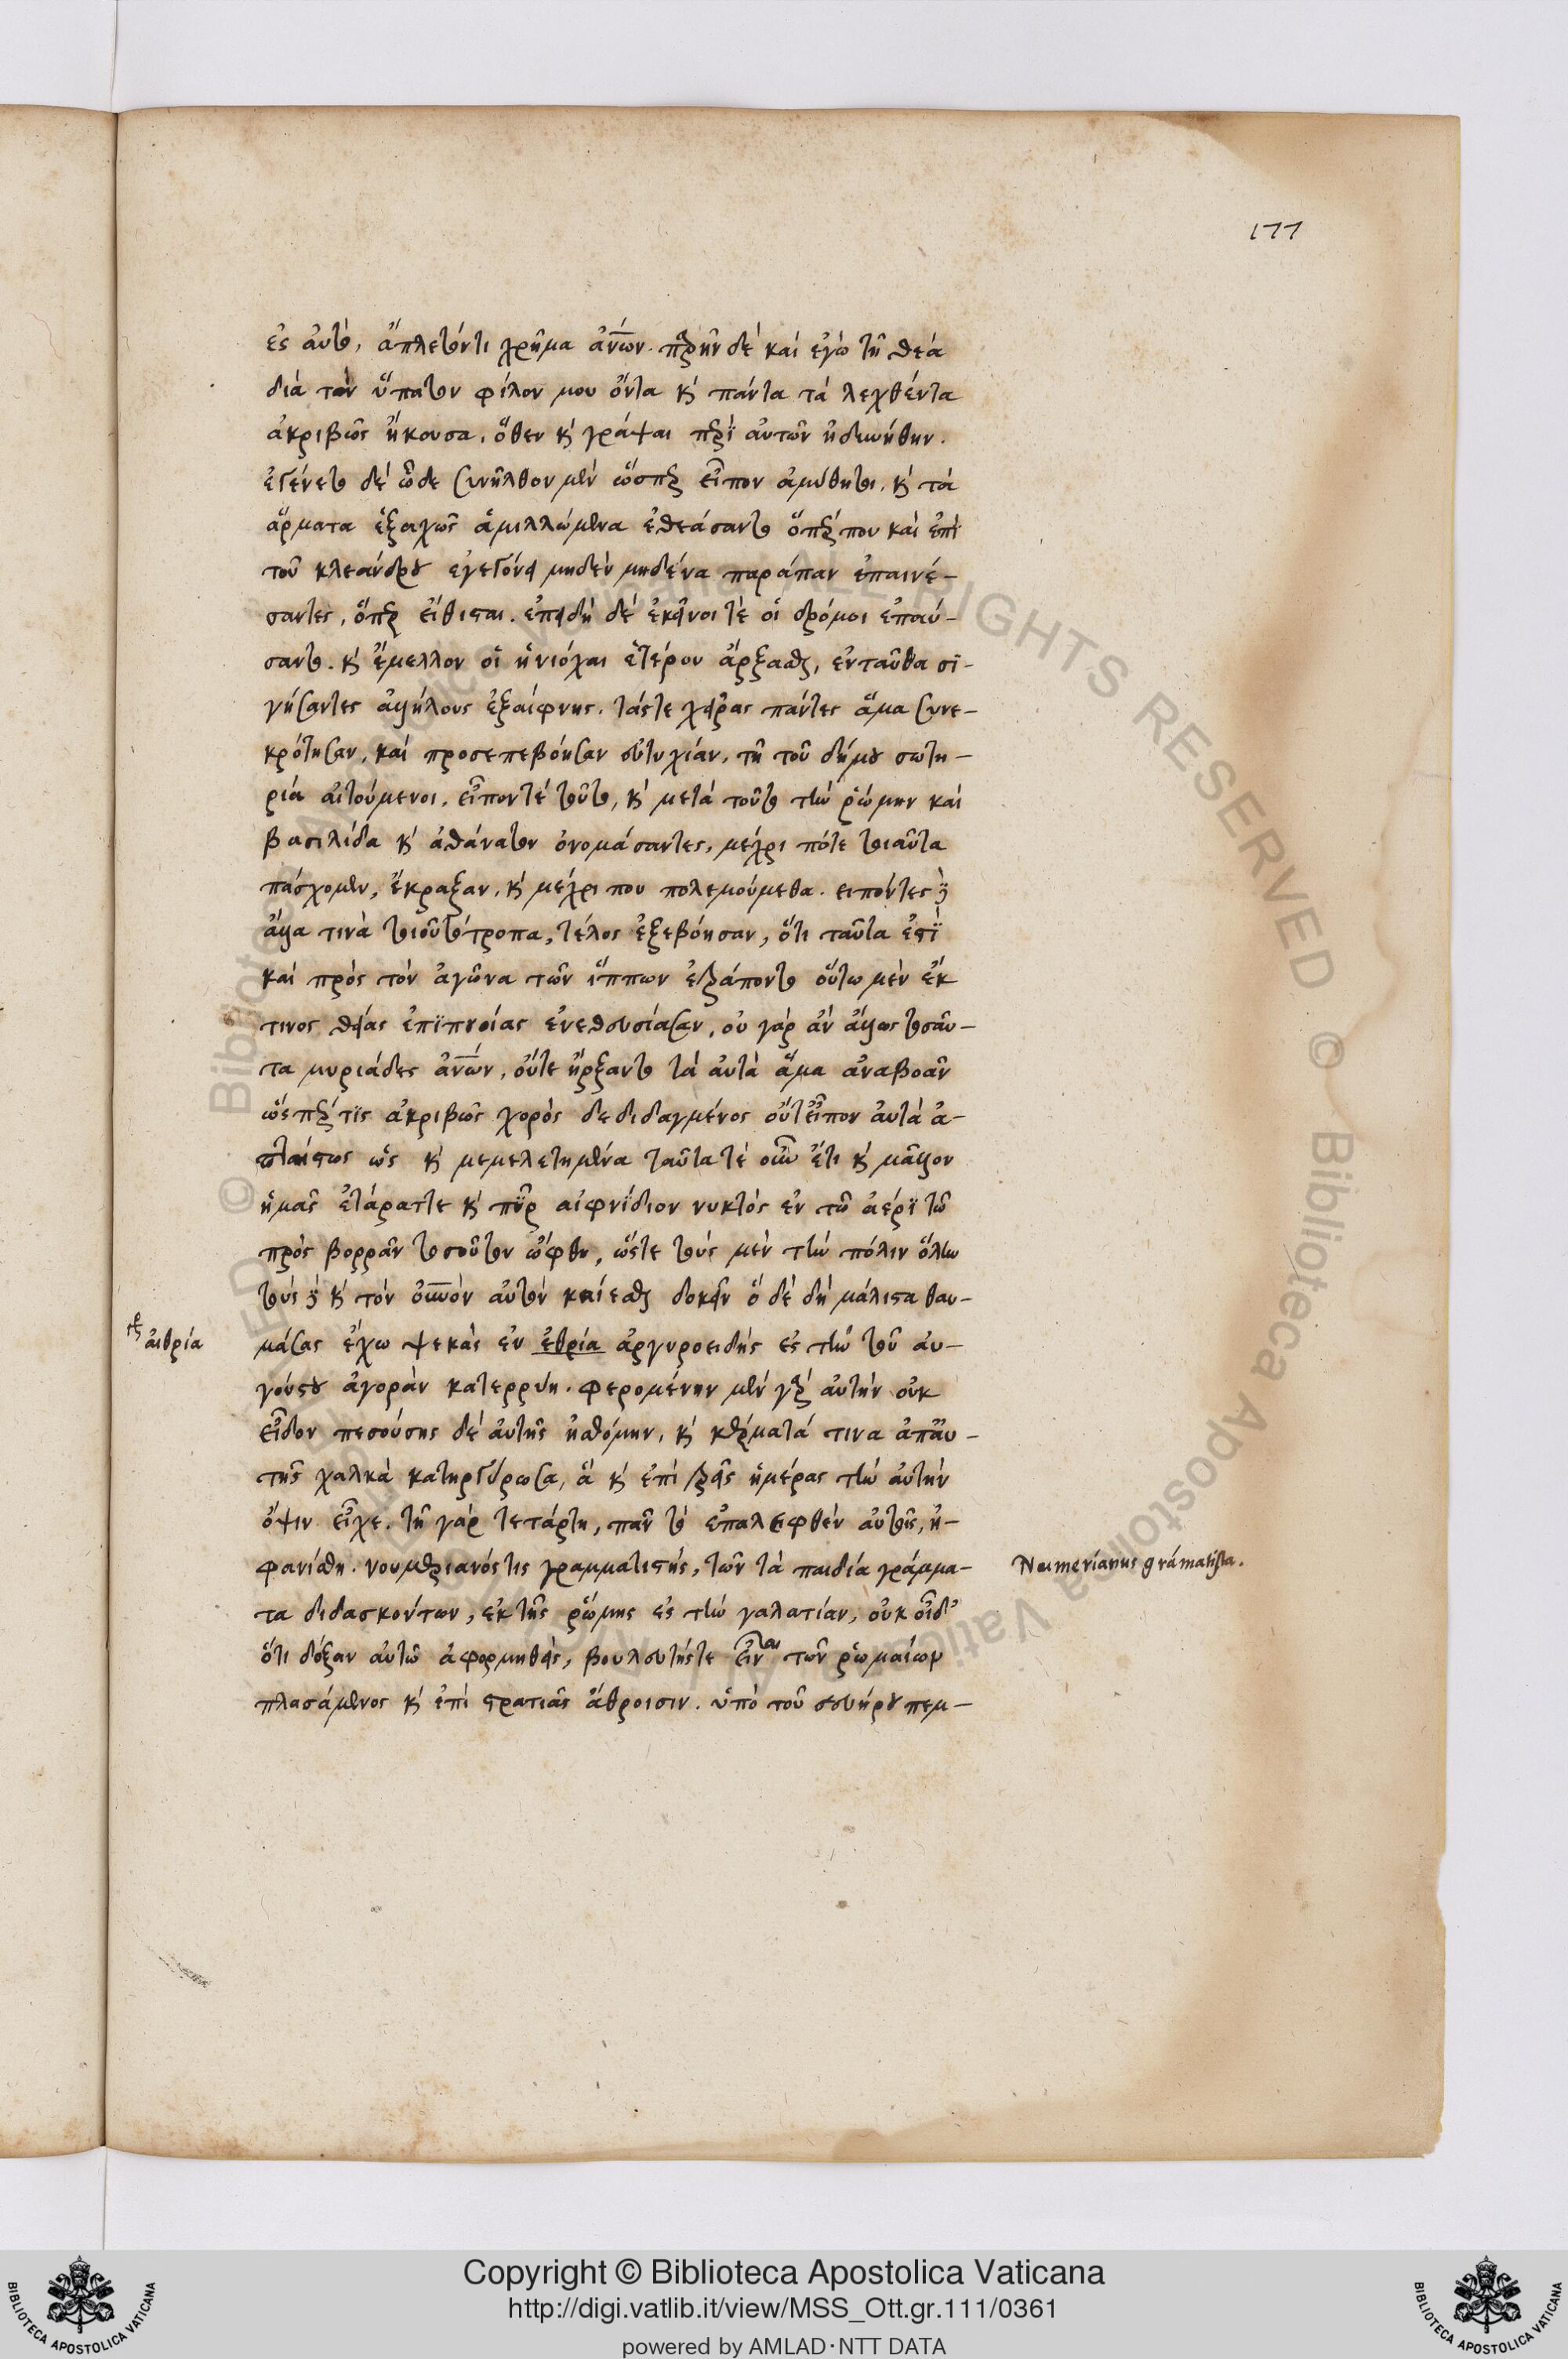 177
ἐς αὐτὸ, ἄπλετόντι χρῆμα ἀνων. παρῆν δὲ καὶ ἐγὼ τῆ θέα
διὰ τὸν ὕπατον φίλον μου ὄντα κ πάντα τὰ λεχθέντα
ἀκριβῶς ἤκουσα, ὅθεν κ γράψαι περὶ αὐτῶν ἠδυνήθην.
ἐγένετο δὲ ὧδε συνῆλθον μὲν ὥσπερ εἶπον ἀμύθητοι, κ τὰ
ἅρματα ἑξαχῶς ἁμιλλώμενα ἐθεάσαντο ὅπέρ που καὶ ἐπὶ
τοῦ κλεάνδρου ἐγεγόνει μηδὲν μηδένα παράπαν ἐπαινέ-
σαντες, ὅπερ εἴθισται. ἐπειδὴ δὲ ἐκεῖνοι τὲ οἱ δρόμοι ἐπαύ-
σαντο. κ ἔμελλον οἱ ἡνιόχαι ἑτέρου ἄρξασθαι, ἐνταῦθα σϊ-
γήσαντες ἀλλήλους ἐξαίφνης. τάς τε χεῖρας πάντες ἅμα συνε-
κρότησαν, καὶ προσεπεβόησαν εὐτυχίαν, τῆ τοῦ δήμου σωτη-
ρία αἰτούμενοι. εἶπον τὲ τοῦτο, κ μετὰ τοῦτο τὴν ῥώμην καὶ
βασιλίδα κ ἀθάνατον ὀνομάσαντες, μέχρι πότε τοιαῦτα
πάσχομεν, ἔκραξαν, κ μέχρι που πολεμούμεθα. ειπόντες δὲ
ἄλλα τινὰ τοιουτότροπα, τέλος ἐξεβόησαν, ὅτι ταῦτα ἐστὶ
καὶ πρὸς τὸν ἀγῶνα τῶν ἵππων ἐτράποντο οὕτω μὲν ἔκ
τινος θείας ἐπϊπνοίας ἐνεθουσίασαν, οὐ γὰρ ἂν ἄλλως τοσαῦ-
τα μυριάδες ἀνων, οὔτε ἤρξαντο τὰ αὐτὰ ἅμα ἀναβοᾶν
ὥσπέρ τϊς ἀκριβῶς χορὸς δεδιδαγμένος οὔτ εἶπον ἀυτὰ ἀ-
πταίστως ὡς κ μεμελετημένα ταῦτα τὲ οὖν ἔτι κ μᾶλλον
ἡμᾶς ἐτάραττε κ πῦρ αἰφνίδιον νυκτὸς ἐν τῶ ἀέρϊ τῶ
πρὸς βορρᾶν τοσοῦτον ὤφθη, ὥστε τοὺς μὲν τὴν πόλιν ὅλην
τοὺς δὲ κ τὸν οὐνὸν αὐτὸν καίεσθαι δοκεῖν ὃ δὲ δὴ μάλιστα θαυ-
μάσας ἔχω ψεκὰς ἐν ἐθρία ἀργυροειδὴς ἐς τὴν τοῦ αὐ-
γούστου ἀγορὰν κατερρύη. φερομένην μὲν γὰρ αὐτὴν οὐκ
εἶδον πεσούσης δὲ ἀυτῆς ἠσθόμην, κ κέρματά τινα ἀπ' ἀυ-
τῆς χαλκὰ κατηργύρωσα, ἃ κ ἐπὶ τρεῖς ἡμέρας τὴν ἀυτὴν
ὄψιν εἶχε. τῆ γὰρ τετάρτη, πᾶν τὸ ἐπαλειφθὲν αὐτοῖς, ἠ-
φανίσθη. νουμεριανός τις γραμματιστὴς, τῶν τὰ παιδία γράμμα-
τα διδασκόντων, ἐκ τῆς ῥώμης ἐς τὴν γαλατίαν, οὐκ οἶδ'
ὅτι δόξαν αὐτῶ ἀφορμηθεὶς, βουλευτής τε εἶναι τῶν ῥωμαίων
πλασάμενος κ ἐπὶ στρατιᾶς ἄθροισιν. ὑπὸ τοῦ σευήρου πεμ-
αἰθρία
Numerianus grámatista.
Copyright © Biblioteca Apostolica Vaticana
http://digi.vatlib.it/view/MSS_Ott.gr.111/0361
powered by AMLAD·NTT DATA